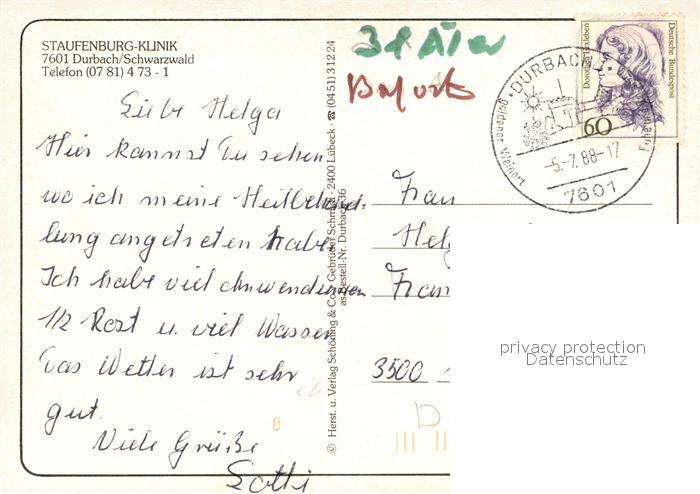 STAUFENBURG-KLINIK
7601 Durbach/Schwarzwald
Telefon (07 81) 4 73 - 1
Liebe Helga
Hier kannst Du sehen
wo ich meine Heilbehand-
lung angetreten habe
Ich habe viel Anwendungen
1/2 Kost u. viel Wasser
Das Wetter ist sehr
gut.
Viele Grüße
Lotti
© Herst. u. Verlag Schöning & Co + Gebrüder Schmidt · 2400 Lübeck · ☎ (04 51) 3 12 24
as Bestell-Nr. Durbach 36
8
DURBACH
goldener Weinort
-5.-7.88-17
7601
Deutsche Bundespost
Dorothea Erxleben
60
Frau
Helg
Fran
3500
D
privacy protection
Datenschutz